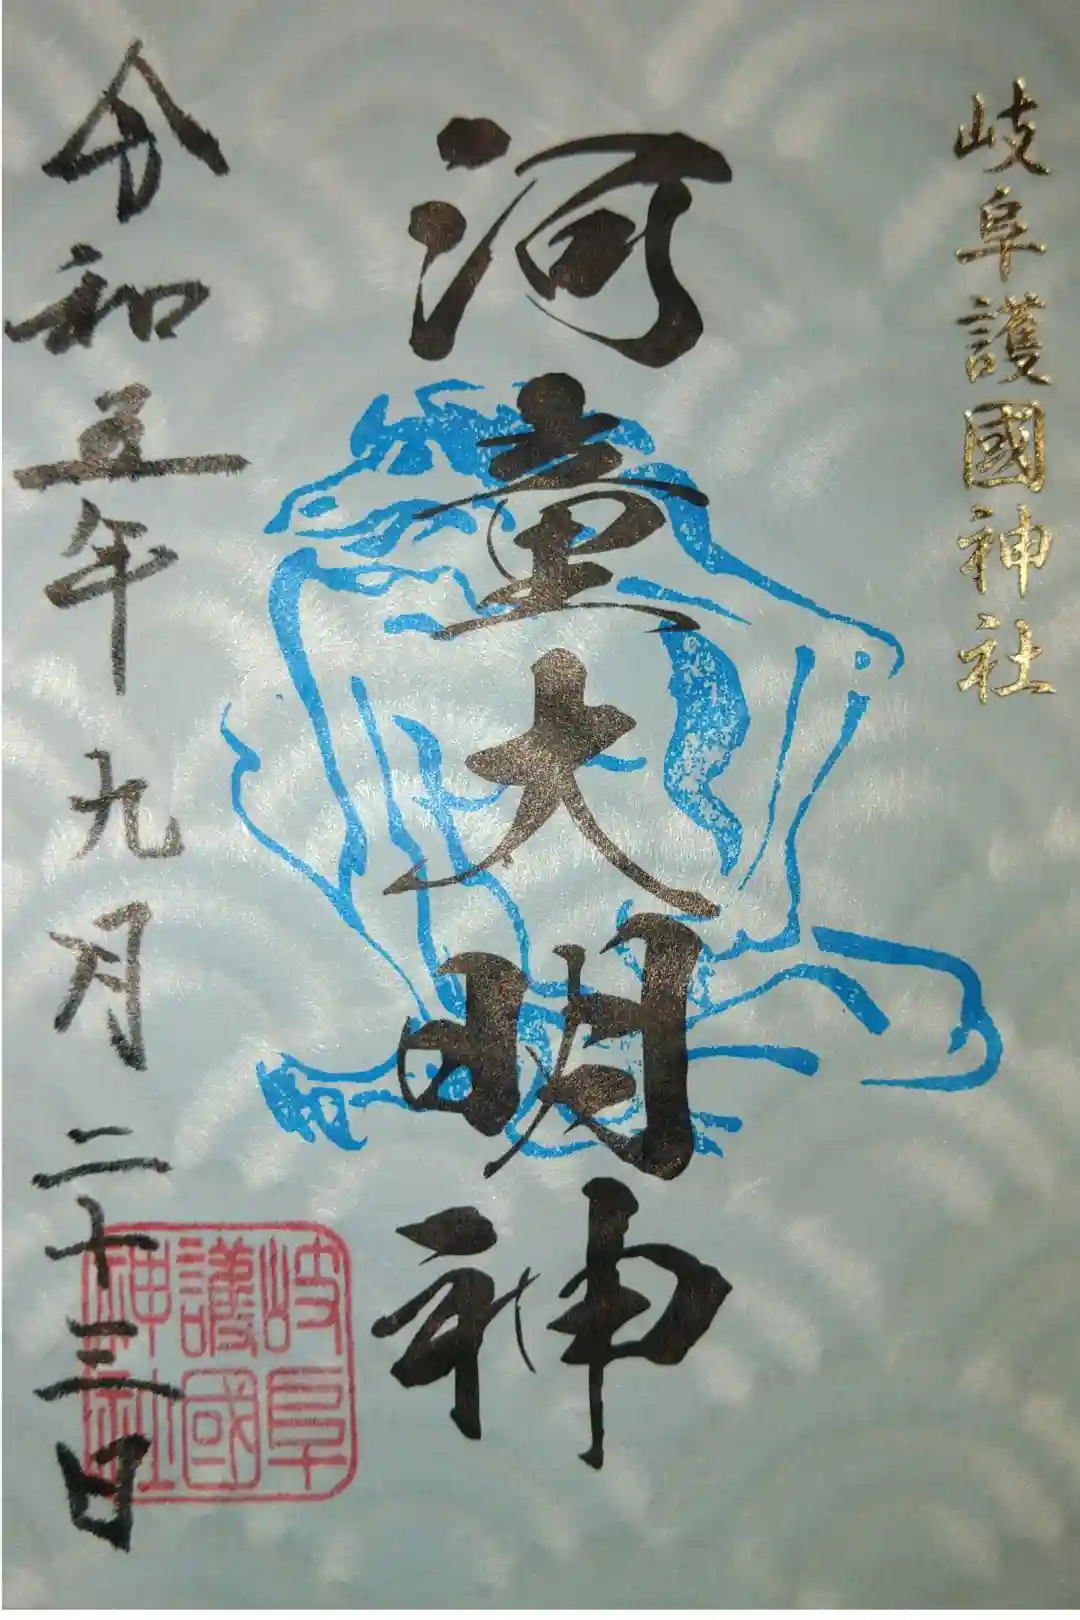 岐阜護國神社
河童大明神
令和五年九月二十三日
岐阜
護國
神社